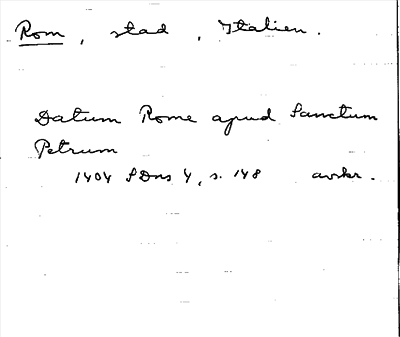 Rom, stad, Italien.
Datum Rome apud Sanctum
Petrum
1404 SDns 4, s. 148 avskr.